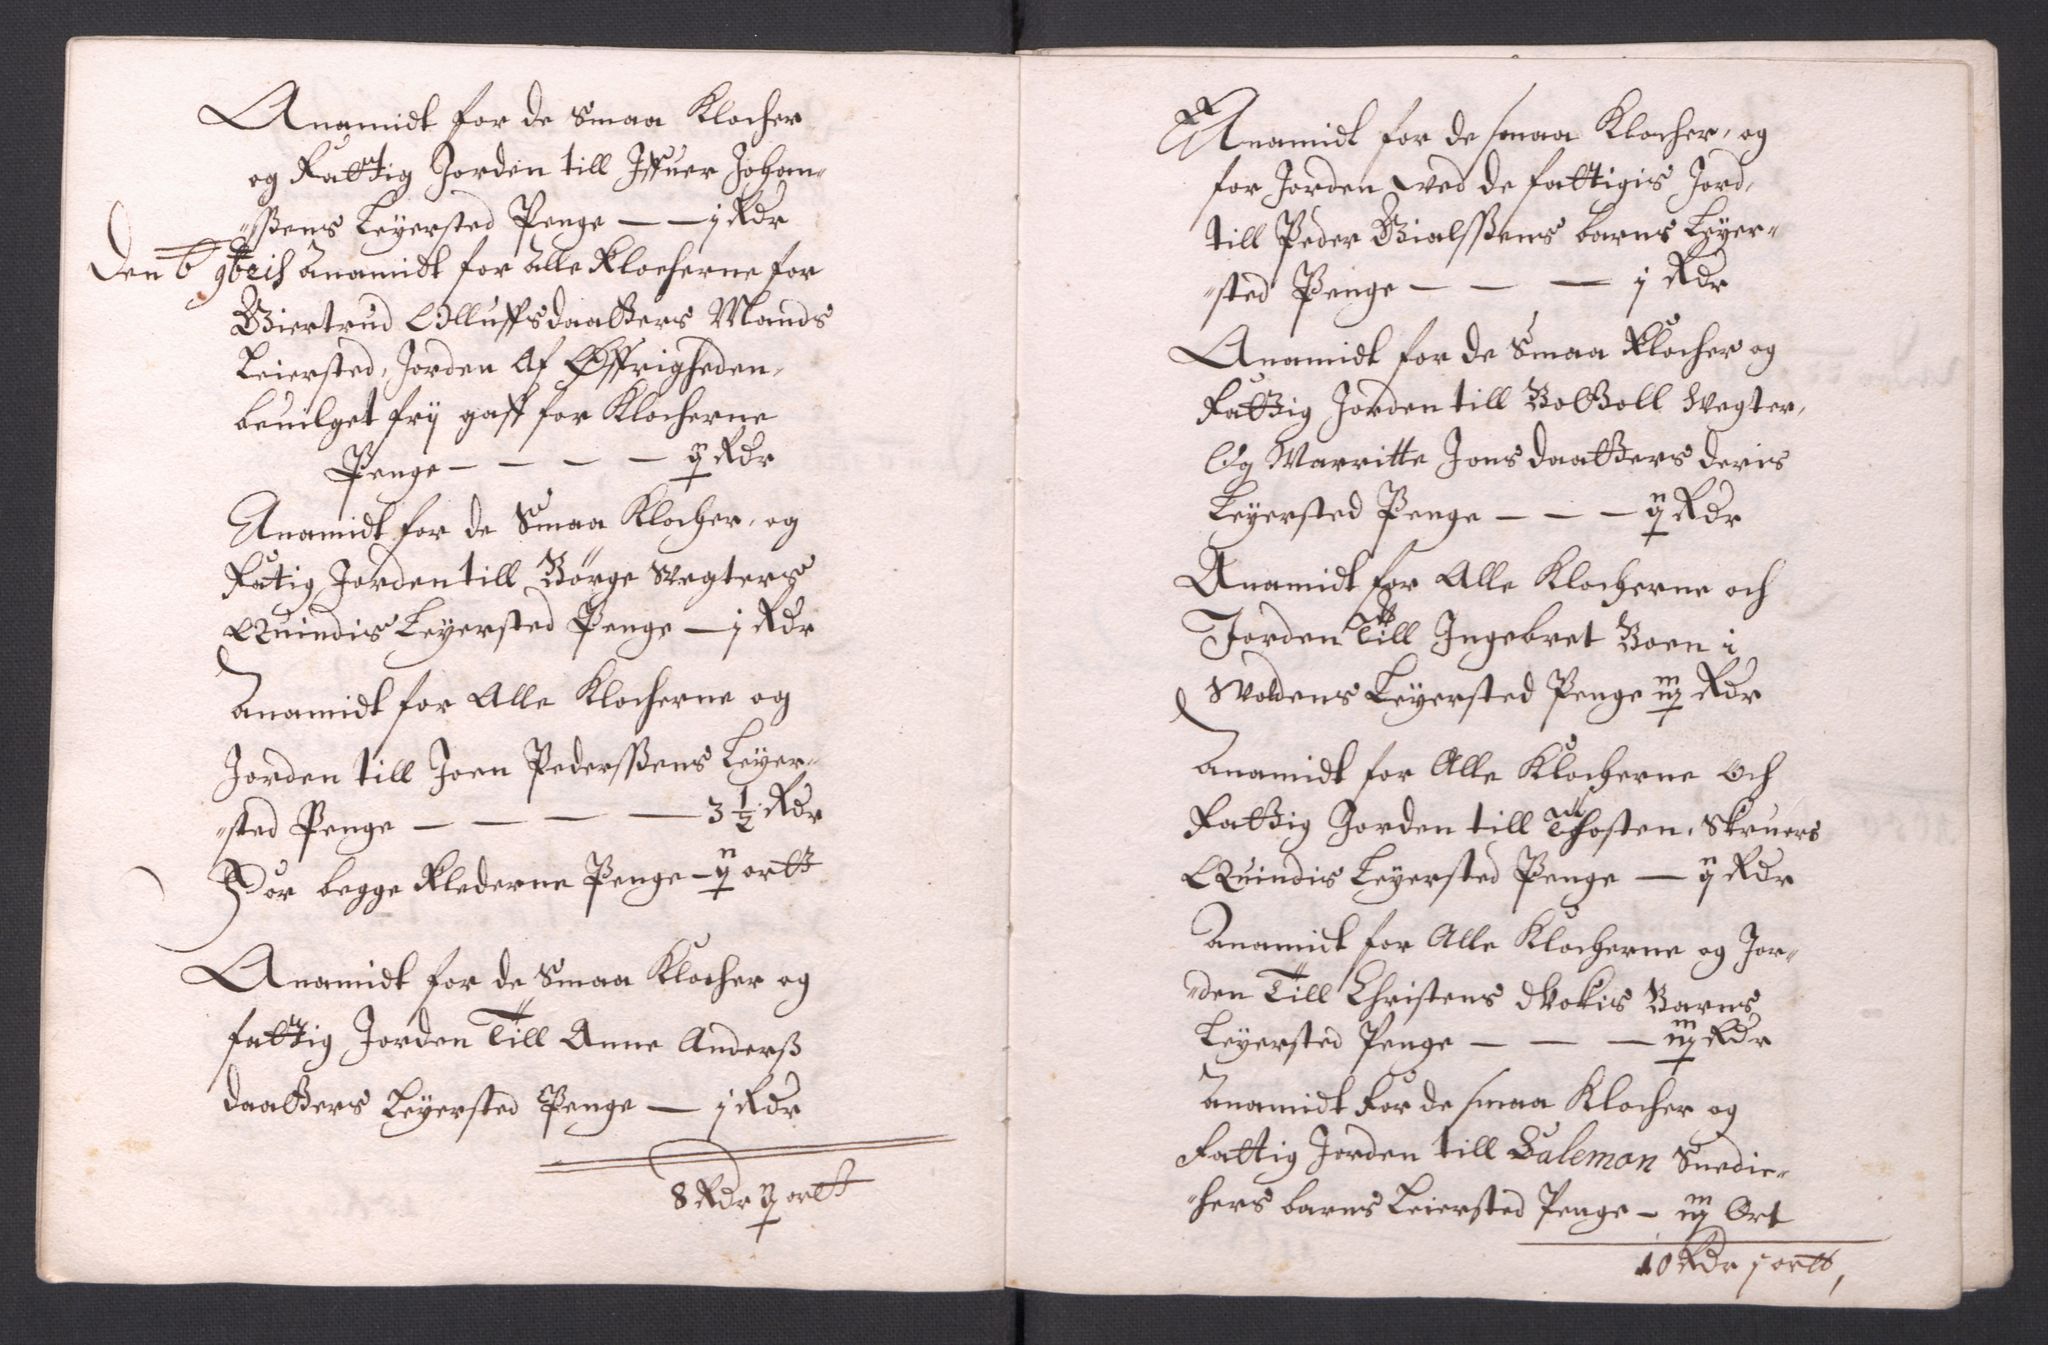 Anamidt for de Smaa Klocher
og Fattig Jorden till Iffuer Johan-
"ßens Leyersted Penge — — j Rdr
Den 6 9bris Anamidt for Alle Klocherne for
Giertrud Olluffsdaatters Mands
Leiersted, Jorden Af Øffrigheden,
beuilget frij gaff for Klocherne
Penge — — — — ij Rdr
Anamidt for de Smaa Klocher, og
Fatig Jorden till Börge Wegters
Quindis Leyersted Penge — j Rdr
Anamidt for Alle Klocherne og
Jorden till Joen Pederßens Leyer-
"sted Penge — — — — 3 1/2 Rdr
For begge Klederne Penge — ij ortt
Anamidt for de Smaa Klocher og
fattig Jorden Till Anne Anderß
daatters Leyersted Penge — j Rdr
8 Rdr ij ortt
Anamidt for de smaa Klocher, og
for Jorden wed de fattigis Jord,
till Peder barns Leyer-
"sted Penge — — — j Rdr
Anamidt for de Smaa Klocher og
Fattig Jorden till Wegter,
Og Marritte Jons daatters deris
Leyersted Penge — — — ij Rdr
Anamidt for Alle Klocherne och
Jorden Till Ingebret Boen i
Woldens Leyersted Penge iij Rdr
Anamidt for Alle Klocherne Och
Fattig Jorden till Thosten Skruers
Quindis Leyersted Penge — ij Rdr
Anamidt for Alle Klocherne og Jor-
"den Till Christens Barns
Leyersted Penge — — — iij Rdr
Anamidt For de smaa Klocher og
Fattig Jorden till Salemon Snedic-
"hers barns Leiersted Penge — iij Ort
10 Rdr j ortt,